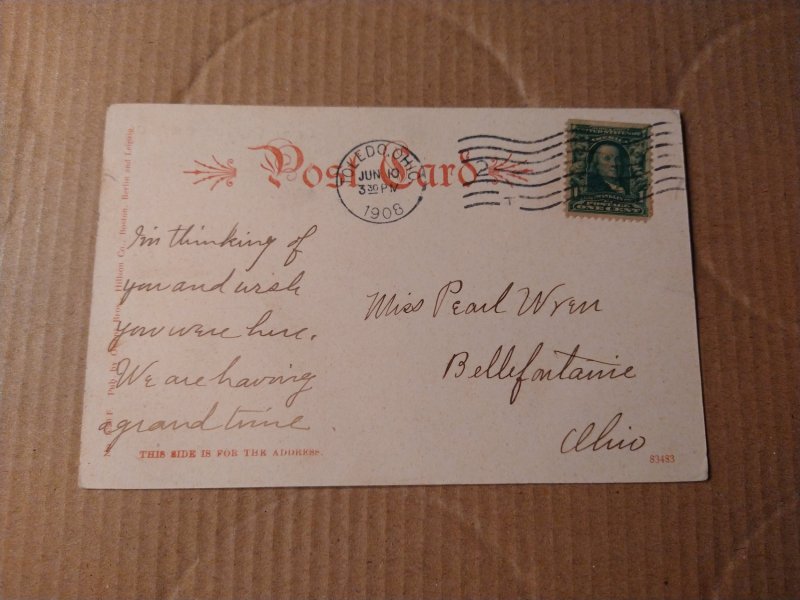 Post Card
TOLEDO, OHIO
JUN 10
3 30 PM
1908
2
T
POSTAGE
ONE CENT
I'm thinking of
you and wish
you were here.
We are having
a grand time.
Miss Pearl Wren
Bellefontaine
Ohio
THIS SIDE IS FOR THE ADDRESS.
83483
Hillson Co., Boston, Berlin and Leipzig.